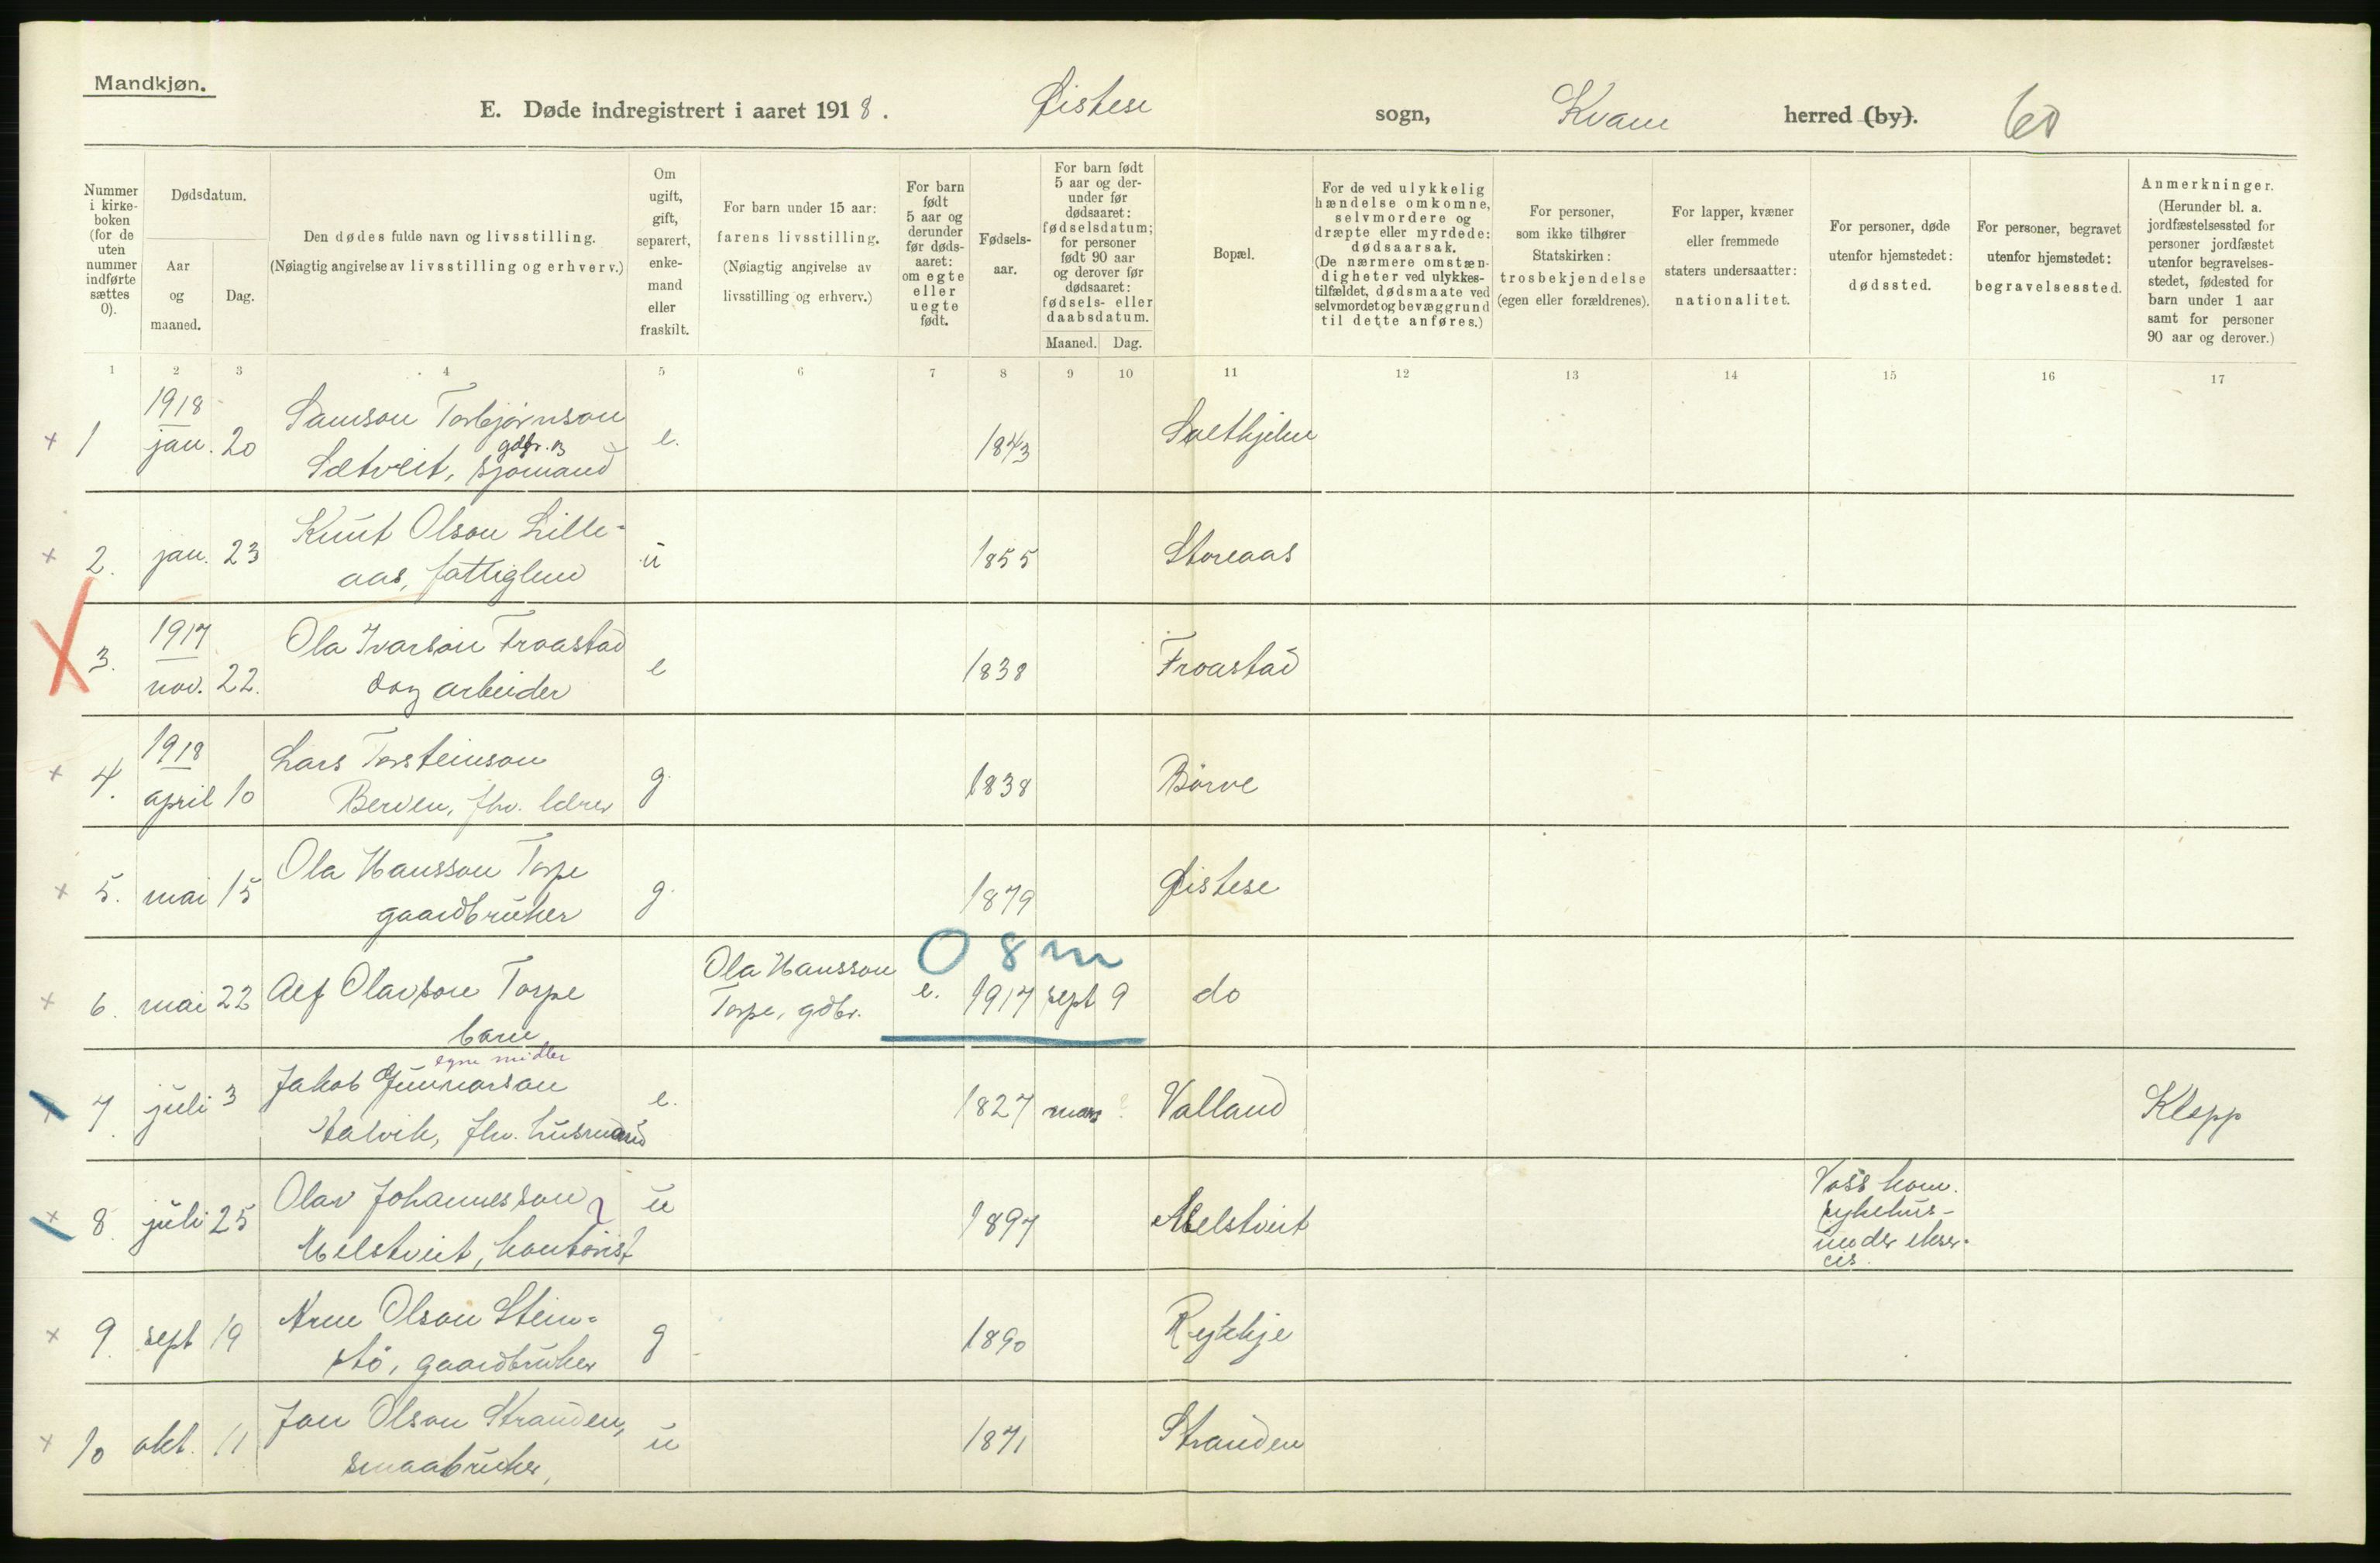 Mandkjøn.
E. Døde indregistrert i aaret 1918. Øistese sogn, Kvam herred (by). 60
Nummer i kirkeboken (for de uten nummer indførte sættes 0).
Dødsdatum.
Aar og maaned.
Dag.
Den dødes fulde navn og livsstilling.
(Nøiagtig angivelse av livsstilling og erhverv.)
Om ugift, gift, separert, enkemand eller fraskilt.
For barn under 15 aar: farens livsstilling.
(Nøiagtig angivelse av livsstilling og erhverv.)
For barn født 5 aar og derunder før dødsaaret: om egte eller uegte født.
Fødselsaar.
For barn født 5 aar og derunder før dødsaaret: fødselsdatum; for personer født 90 aar og derover før dødsaaret: fødsels- eller daabsdatum.
Maaned. Dag.
Bopæl.
For de ved ulykkelig hændelse omkomne, selvmordere og dræpte eller myrdede: dødsaarsak.
(De nærmere omstændigheter ved ulykkestilfældet, dødsmaate ved selvmordet og bevæggrund til dette anføres.)
For personer, som ikke tilhører Statskirken: trosbekjendelse (egen eller forældrenes).
For lapper, kvæner eller fremmede staters undersaatter: nationalitet.
For personer, døde utenfor hjemstedet: dødssted.
For personer, begravet utenfor hjemstedet: begravelsessted.
Anmerkninger.
(Herunder bl. a. jordfæstelsessted for personer jordfæstet utenfor begravelsesstedet, fødested for barn under 1 aar samt for personer 90 aar og derover.)
1 2 3 4 5 6 7 8 9 10 11 12 13 14 15 16 17
× 1 1918 jan. 20 Samson Torbjørnson
Sætveit, gdbr. og sjømand e. 1843 Saethjelm
× 2. jan. 23 Knut Olson Lille-
aas, fattiglem u 1855 Storeaas
3. 1917 nov. 22. Ola Ivarson Froastad
dagarbeider e 1838 Froastad
× 4. 1918 april 10 Lars Torsteinson
Berven, fhv. lærer g. 1838 Börve
× 5. mai 15 Ola Hansson Torpe
gaardbruker g. 1879 Øistese
× 6. mai 22 Alf Olavson Torpe
barn
Ola Hansson
Torpe, gdbr. e. 1917 sept 9 do
0 8 m
egne midler
× 7. juli 3 Jakob Gunnarson
Aalvik, fhv. husmand e. 1827 mars ? Valland Klepp
× 8. juli 25 Olav Johannesson
Melstveit, kontorist u 1897 Melstveit
Voss kom.
sykehus-
under ekser-
cis.
× 9. sept 19 Arne Olson Stein-
stø, gaardbruker g 1890 Rykkje
× 10 okt. 11 Jon Olson Stranden,
smaabruker, u 1871 Stranden